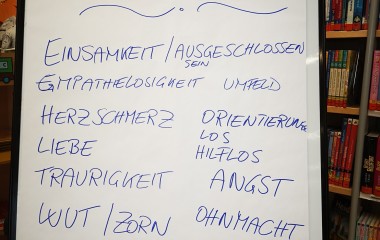 EINSAMKEIT / AUSGESCHLOSSEN
SEIN
EMPATHELOSIGKEIT UMFELD
HERZSCHMERZ ORIENTIERUNG
LOS
LIEBE HILFLOS
TRAURIGKEIT ANGST
WUT / ZORN OHNMACHT